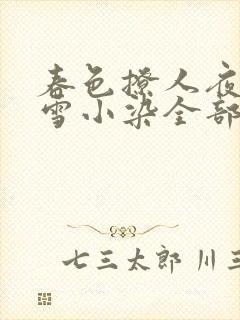 春色撩人夜
雪小染全部
七三太郎 川三